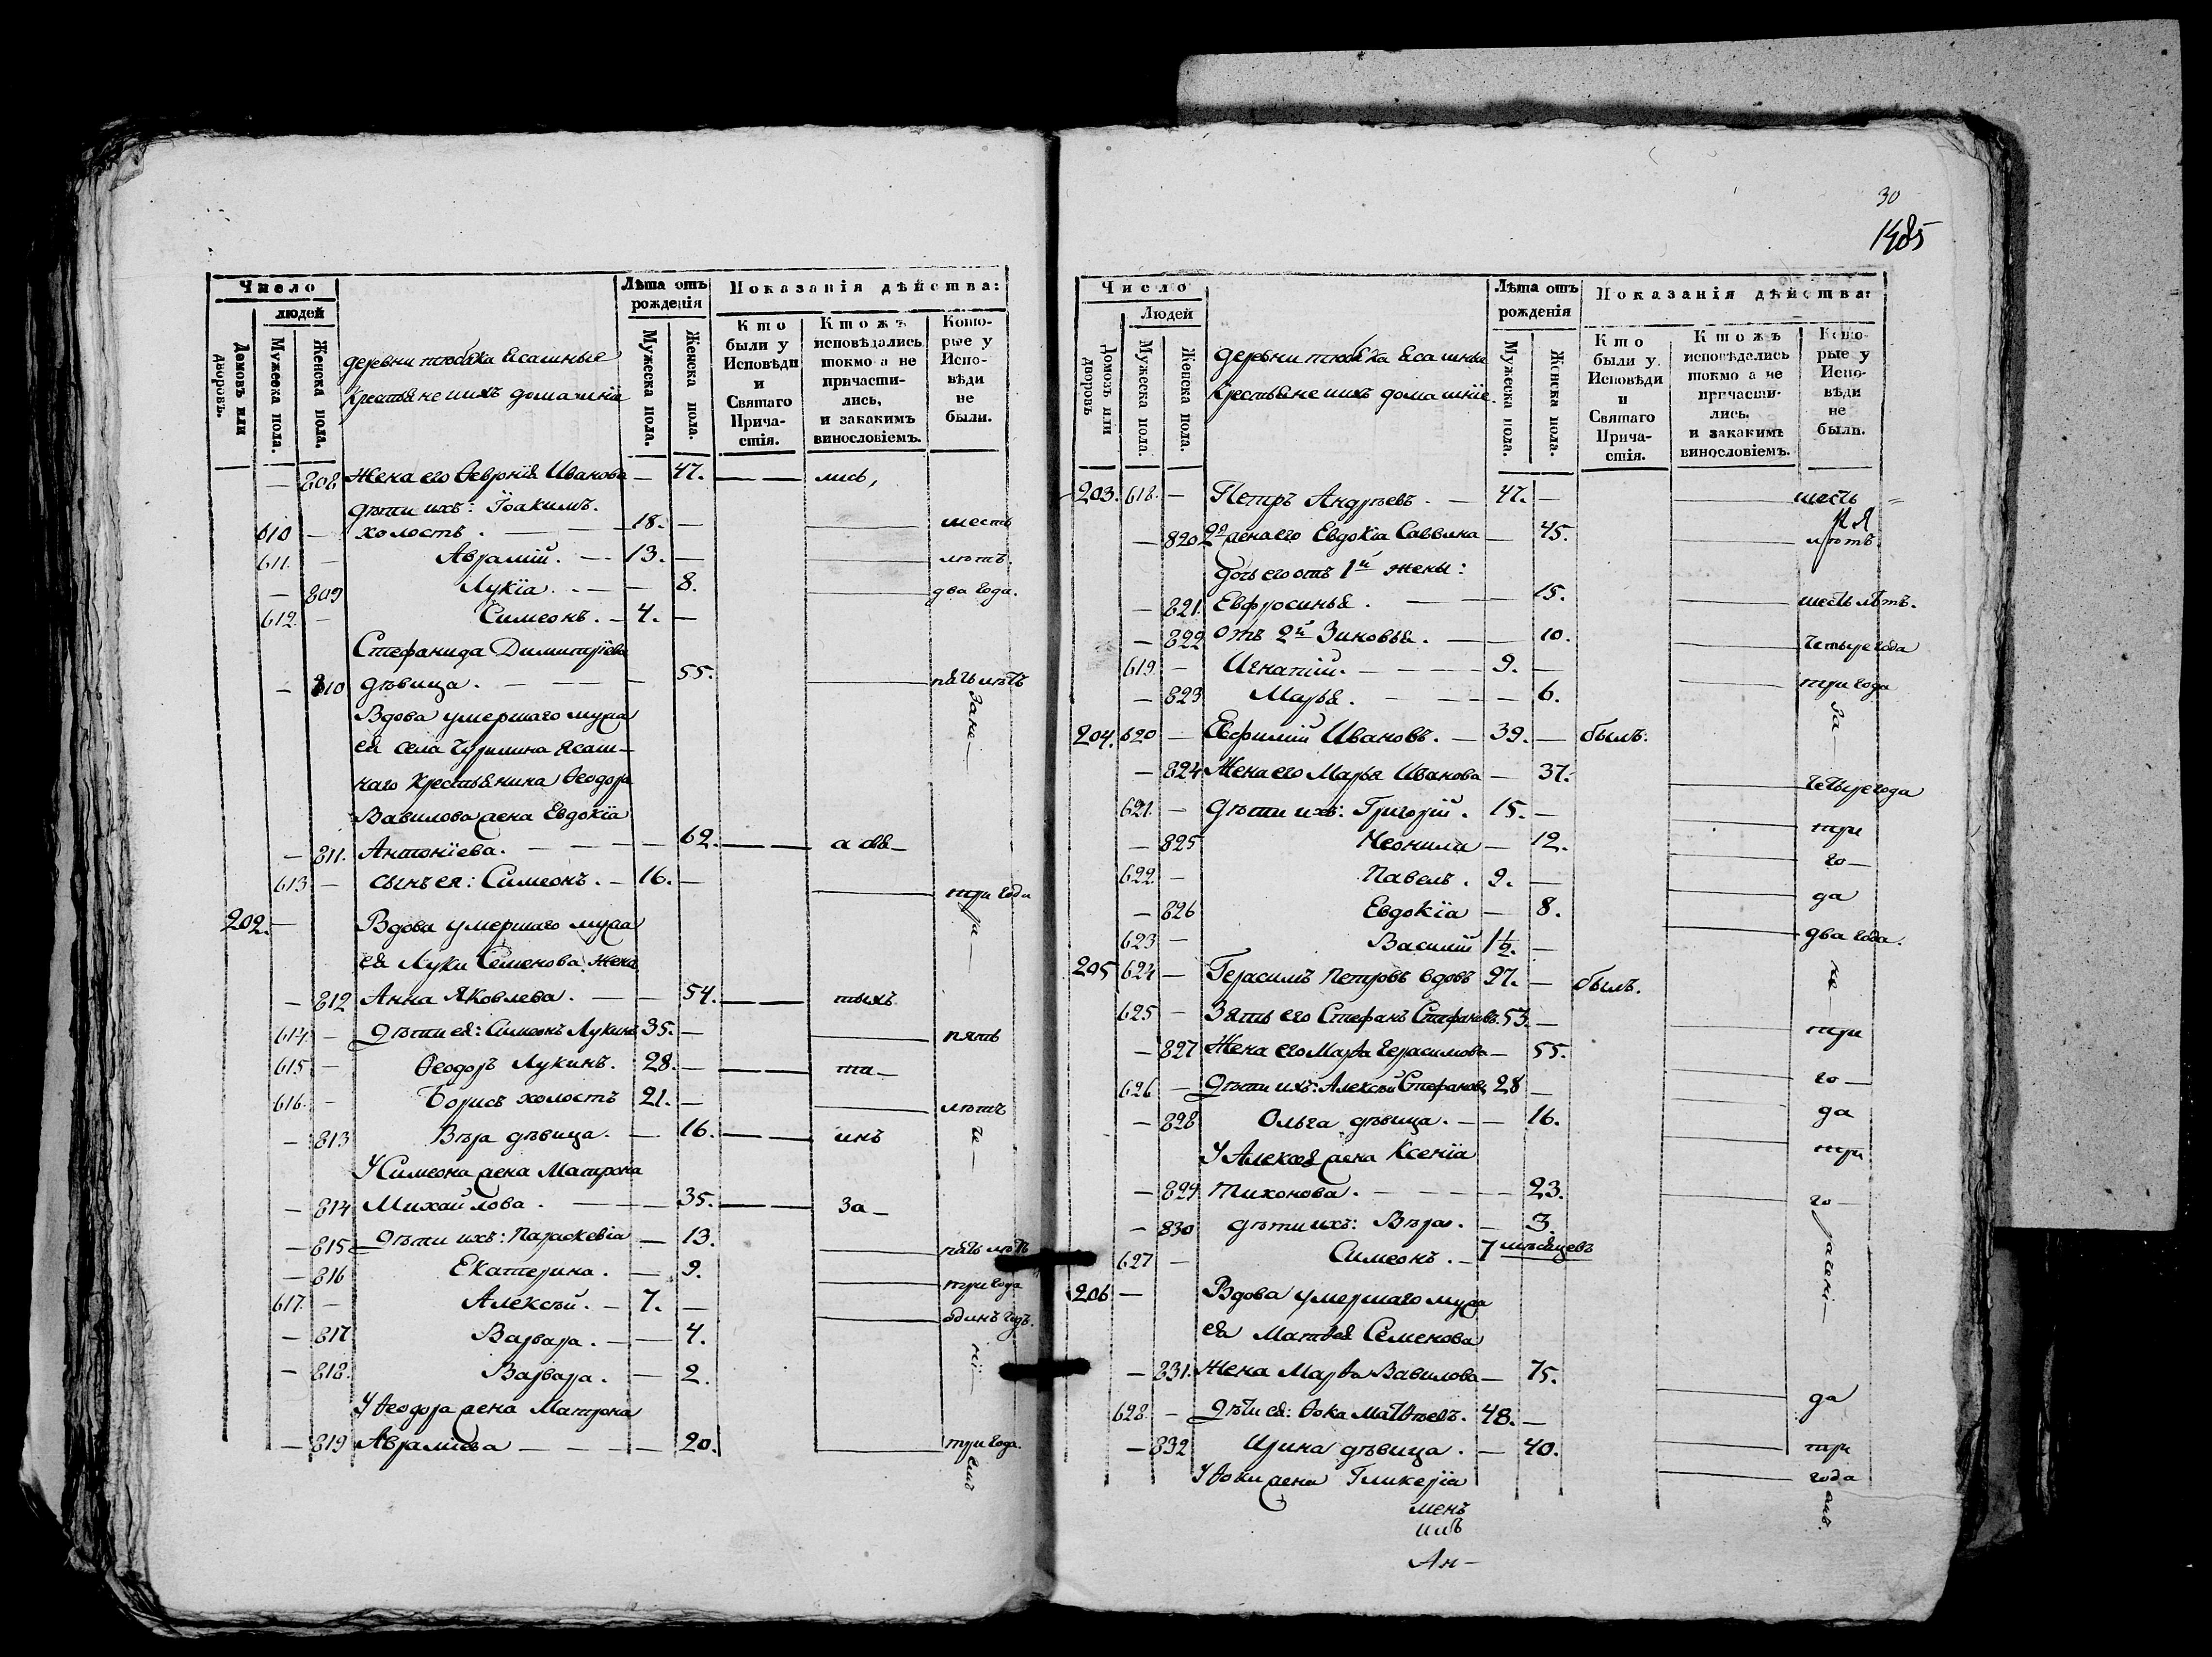 Число
людей
Домовъ или дворовъ.
Мужеска пола.
Женска пола.
деревни тюбяка Ясашные
Крестьяне ихъ домашнiе
Лѣта отъ рожденiя
Мужеска пола.
Женска пола.
Показанiя дѣйства:
Кто были у Исповѣди и Святаго Прича-стiя.
Ктожъ исповѣдались токмо а не причасти-лись, и закакимъ винословiемъ.
Кото-рые у Испо-вѣди не были.
— 808 Жена его Феврнiя Иванова — 47. — — лись,
дѣти ихъ: Iоакимъ.
610 — холостъ. — 18. — — шесть
611. — Аврамiй. — 13. — — лѣтъ.
— 809 Лукiа. — — 8. — два года.
612. — Симеонъ. — 4. —
Стефанида Димитрiева
— 810 дѣвица. — 55. — пять лѣтъ
Вдова умершаго мужа
ея села Чурилина Ясаш-
наго Крестьянина Ѳеодора
Вавилова жена Евдокiа
— 811. Антонiева. — 62. — — а ѡвя-
613 — сынъ ея: Симеонъ. — 16. — — три года
202. — Вдова умершаго мужа
ея Луки Семенова жена
— 812 Анна Яковлева. — — 54. — — тыхъ
614. — Дѣти ея: Симеонъ Лукинъ 35. — — пять
615 — Ѳеодоръ Лукинъ. 28. — — та-
616. — Борисъ холостъ 21. — — лѣтъ
— 813 Вѣра дѣвица. — 16. — — инъ
У Симеона жена Матрона
— 814 Михайлова. — — 35. — — За-
— 815 Дѣти ихъ: Параскевiа — 13. — пять лѣтъ
— 816 Екатерина. — 9. — три года
617. — Алексѣй. — 7. — — одинъ годъ.
— 817 Варвара. — 4.
— 818. Варвара. — 2.
У Ѳеодора жена Матрона
— 819 Аврамiева — — 20. — три года.
30
1485
Число
Людей
Домовъ или дворовъ
Мужеска пола.
Женска пола.
деревни тюбяка Ясашные
Крестьяне ихъ домашнiе.
Лѣта отъ рожденiя
Мужеска пола.
Женска пола.
Показанiя дѣйства:
Кто были у Исповѣди и Святаго Прича-стiя.
Ктожъ исповѣдались токмо а не причасти-лись, и закакимъ винословiемъ.
Кото-рые у Испо-вѣди не были.
203. 618. — Петръ Андрѣевъ. — 47. — — шесть
— 820 2я жена его Евдокiа Саввина — 45. — лѣтъ
Дочь его отъ 1й жены:
— 821. Евфросинья. — — 15. — шесть лѣтъ.
— 822 отъ 2й Зиновья. — — 10. — четыре года
619. — Игнатiй. — 9. — — три года
— 823 Марья. — — 6.
204. 620 — Евфимiй Ивановъ. — 39. — былъ.
— 824 Жена его Марья Иванова — 37. — четыре года
621. — Дѣти ихъ: Григорiй. 15. — — три
— 825 Неонила — 12. — го-
622. — Павелъ. 9. — — да
— 826 Евдокiа — 8. — два года.
623 — Василiй 1½. —
205 624 — Герасимъ Петровъ вдовъ 97. — былъ.
625 — Зять его Стефанъ Стефановъ. 53. — — три
— 827 Жена его Марѳа Герасимова — 55. — го-
626 — Дѣти ихъ: Алексѣй Стефановъ 28 — — да
— 828 Ольга дѣвица. — — 16. — три
У Алексѣя жена Ксенiа
— 829 Тихонова. — — 23. — го-
— 830 дѣти ихъ: Вѣра. — 3.
627 — Симеонъ. — 7 мѣсяцевъ
206 — Вдова умершаго мужа
ея Матѳея Семенова
— 831. Жена Марѳа Вавилова — 75. — да
628. — Дѣти ея: Ѳока Матвѣевъ. 48. — — три
— 832 Ирина дѣвица. — 40. — года
У Ѳоки жена Гликерiа
Ан-